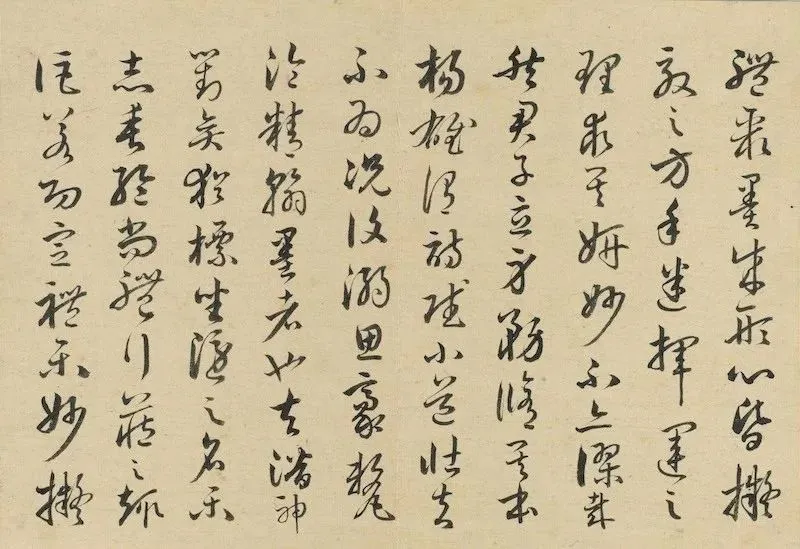 體聚墨成形心昏擬
效之方手迷揮運之
理求其妍妙不亦謬哉
然君子立身務脩其本
楊雄謂詩賦小道壯夫
不為況復溺思豪釐
淪精翰墨者也夫潛神
對奕猶標坐隱之名樂
志垂綸尚體行藏之趣
詎若功宣禮樂妙擬